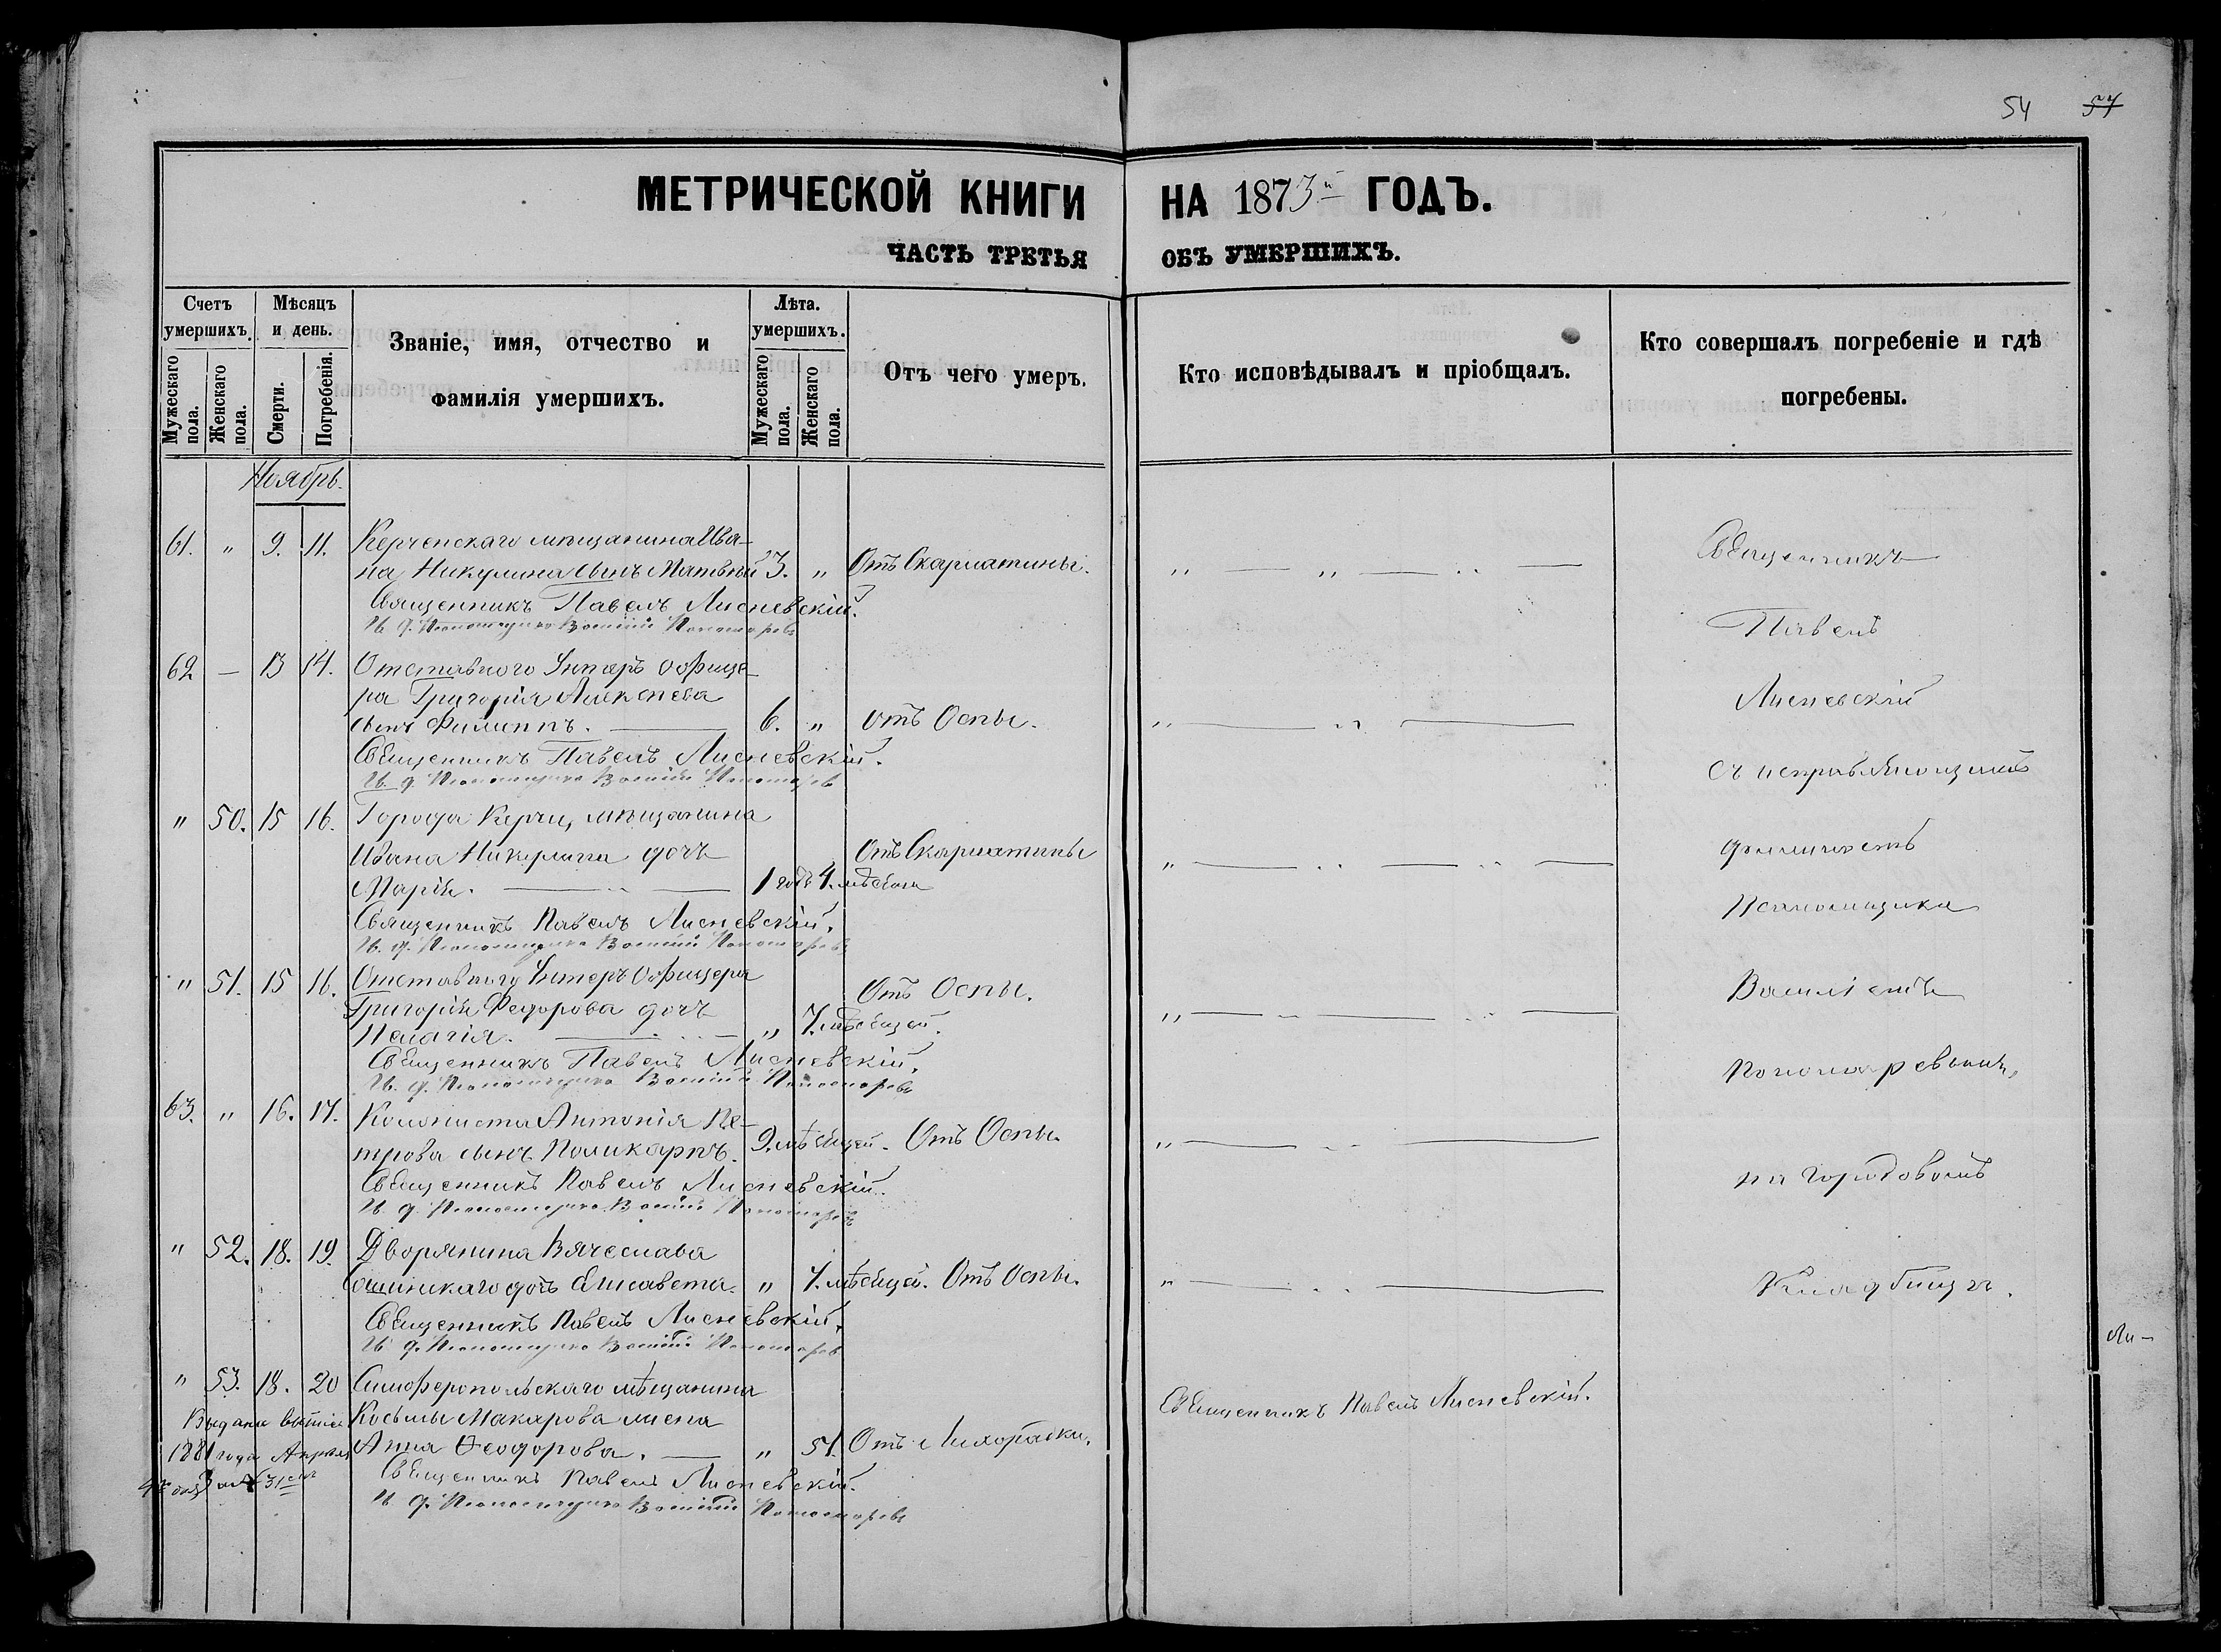 54 57
МЕТРИЧЕСКОЙ КНИГИ НА 1873й ГОДЪ.
ЧАСТЬ ТРЕТЬЯ ОБЪ УМЕРШИХЪ.
Счетъ умершихъ.
Мужескаго пола.
Женскаго пола.
Мѣсяцъ и день.
Смерти.
Погребенія.
Званіе, имя, отчество и
фамилія умершихъ.
Лѣта. умершихъ.
Мужескаго пола.
Женскаго пола.
Отъ чего умеръ.
Кто исповѣдывалъ и пріобщалъ.
Кто совершалъ погребеніе и гдѣ
погребены.
Ноябрь.
61. " 9. 11. Керченскаго мѣщанина Ива-
на Никулина сынъ Матвѣй 3. " Отъ Скарлатины.
Священникъ Павелъ Лисневскій.
И. д. Псаломщика Василій Пономаревъ
62 — 13 14. Отставного Унтеръ офице-
ра Григорія Алексѣева
сынъ Филиппъ. 6. " отъ Оспы.
Священникъ Павелъ Лисневскій.
И. д. Псаломщика Василій Пономаревъ
" 50. 15 16. Города Керчи, мѣщанина
Ивана Никулина дочь Отъ Скарлатины
Марія. 1 годъ 4. мѣсяца
Священникъ Павелъ Лисневскій.
И. д. Псаломщика Василій Пономаревъ
" 51. 15 16. Отставного Унтеръ Офицера
Григорія Федорова дочь Отъ Оспы.
Пелагія. " 7. мѣсяцей.
Священникъ Павелъ Лисневскій.
И. д. Псаломщика Василій Пономаревъ
63. " 16. 17. Колониста Антонія Пе-
трова сынъ Поликарпъ. 9. мѣсяцей. Отъ Оспы.
Священникъ Павелъ Лисневскій.
И. д. Псаломщика Василій Пономаревъ
" 52. 18. 19. Дворянина Вячеслава
дочь Елисавета. " 7. мѣсяцей. Отъ Оспы.
Священникъ Павелъ Лисневскій.
И. д. Псаломщика Василій Пономаревъ
" 53. 18. 20 Симферопольскаго мѣщанина
Косьмы Макарова жена
Анна Ѳеодорова. " 51. Отъ Лихорадки.
Священникъ Павелъ Лисневскій.
И. д. Псаломщика Василій Пономаревъ
Выдана
1881 года Апрѣля
Священникъ Павелъ Лисневскій.
Священникъ
Павелъ
Лисневскій
съ исправляющимъ
должность
Псаломщика
Василіемъ
Пономаревымъ,
на городовомъ
Кладбищѣ.
Ли-